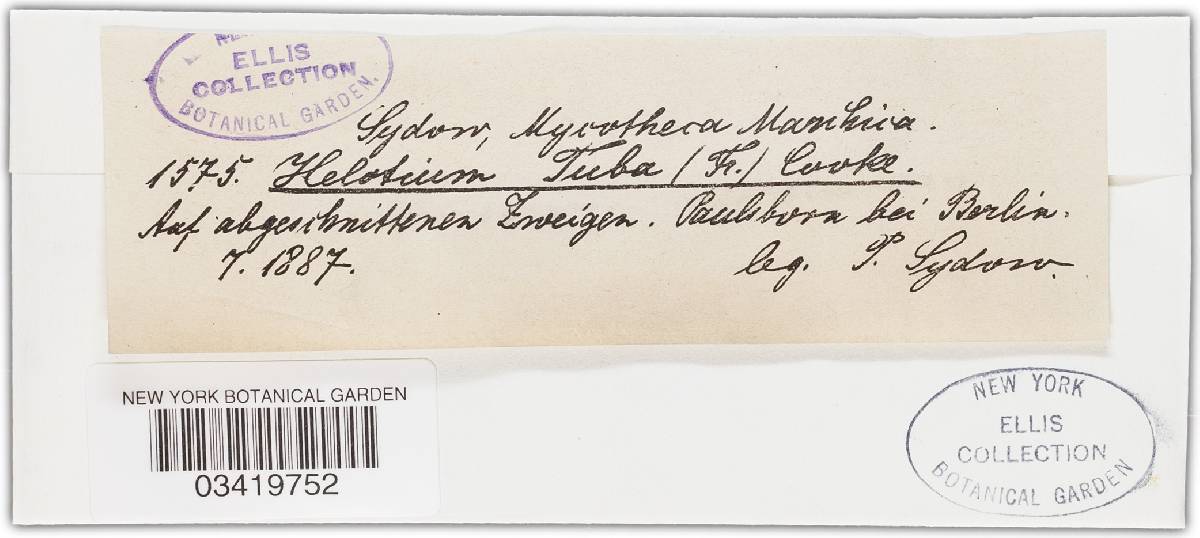 ELLIS
COLLECTION
BOTANICAL GARDEN.
Sydow, Mycotheca Marchica.
1575. Helotium Tuba (Fr.) Cooke.
Auf abgeschnittenen Zweigen. Paulsborn bei Berlin.
7. 1887. leg. P. Sydow.
NEW YORK BOTANICAL GARDEN
03419752
NEW YORK
ELLIS
COLLECTION
BOTANICAL GARDEN